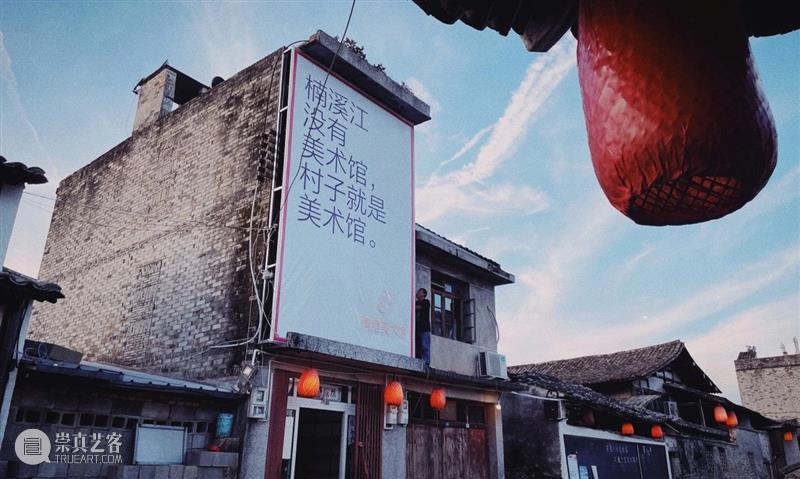 楠溪江
没有
美术馆，
村子就是
美术馆。
崇真艺客
TRUEART.COM